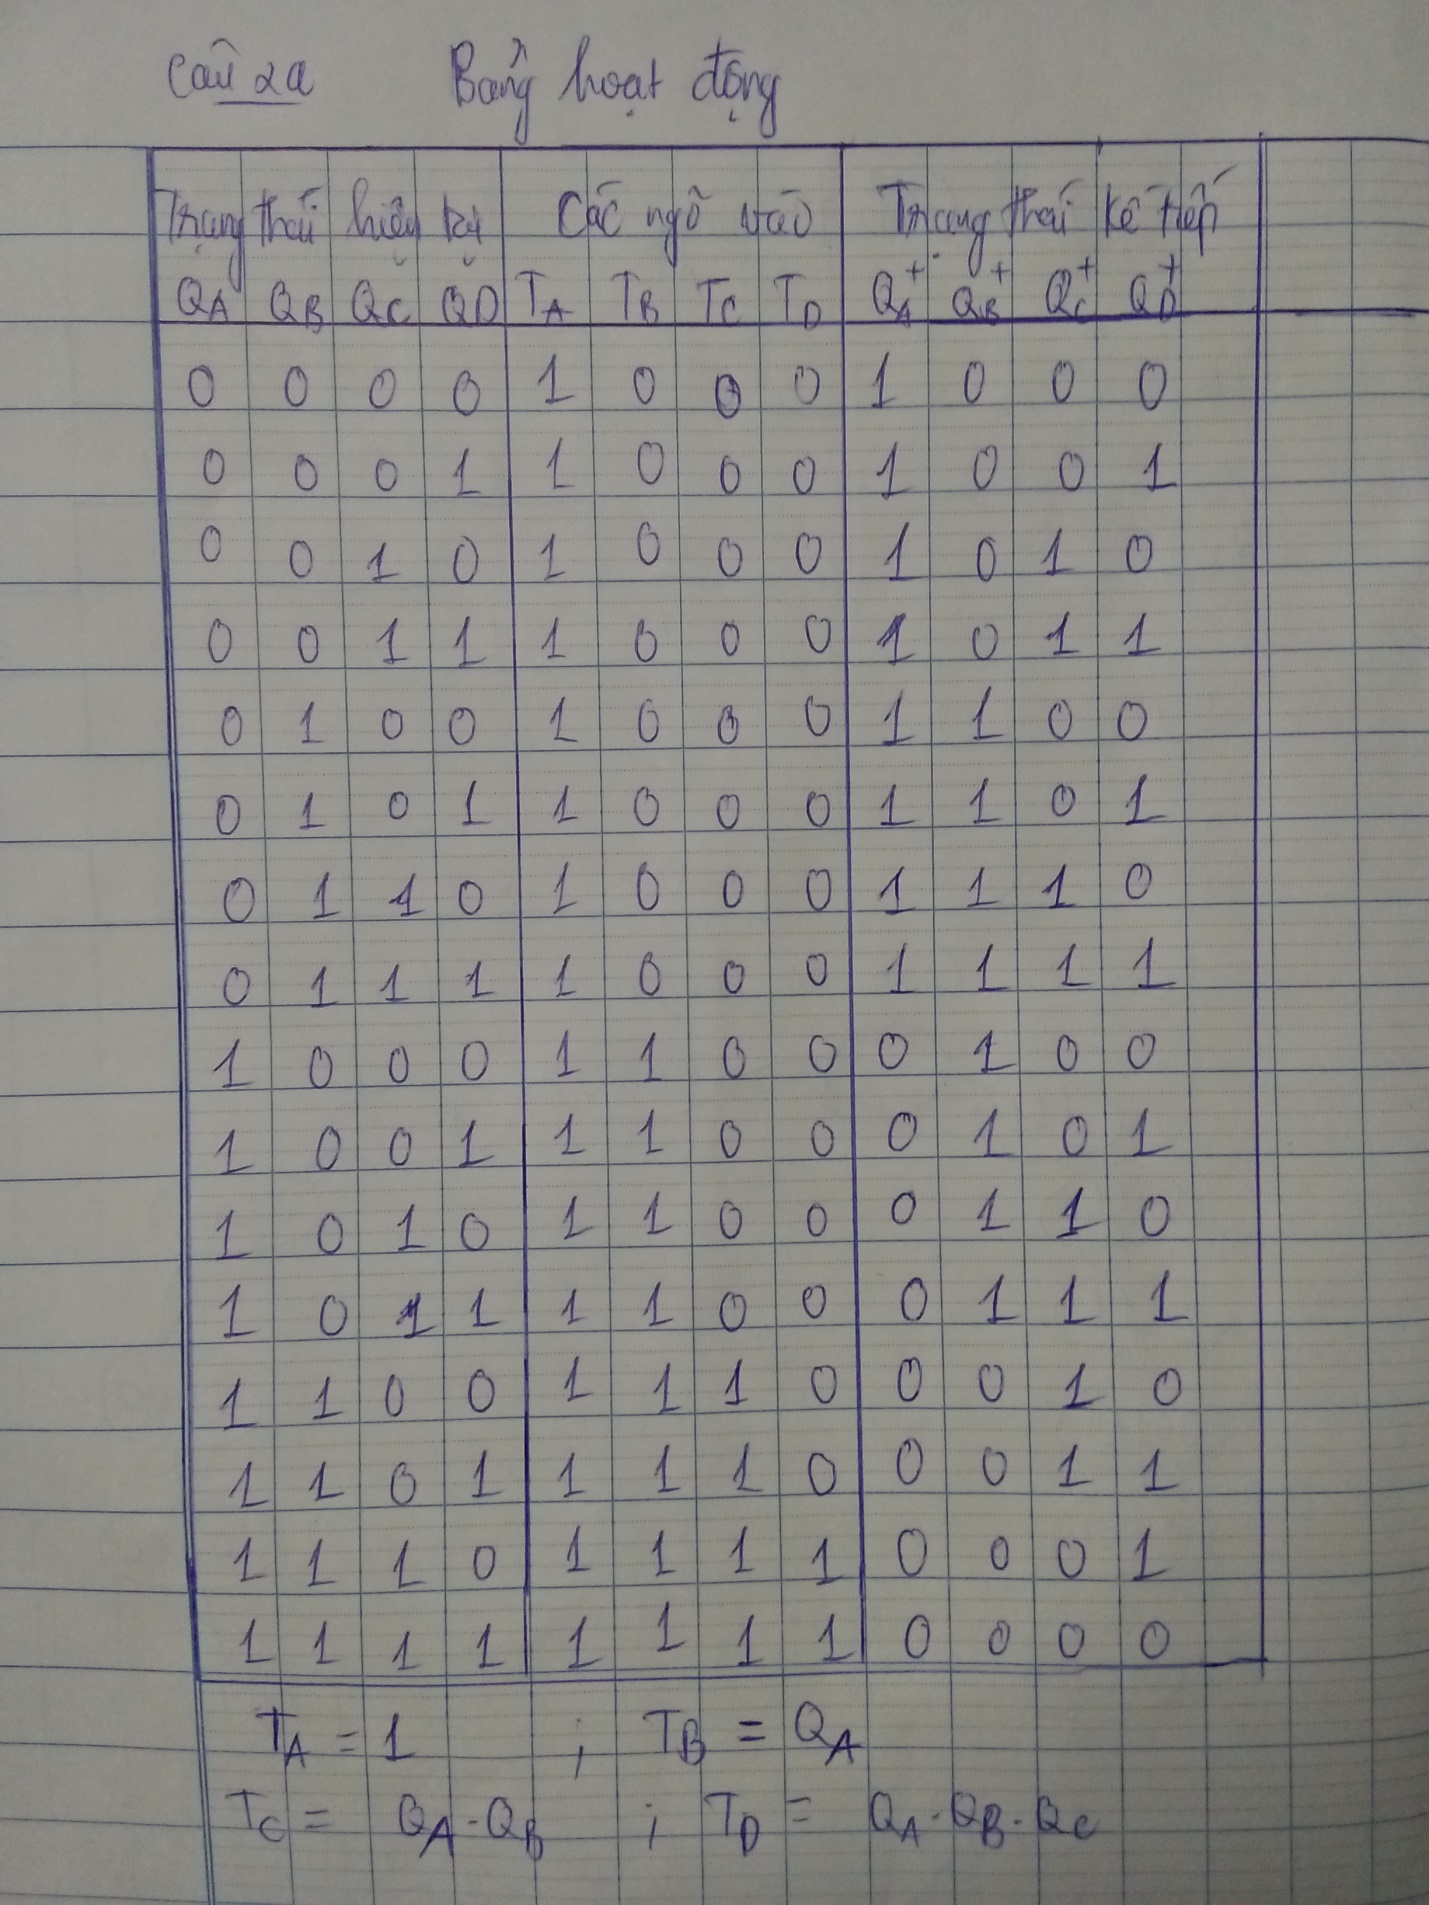 Câu 2a Bảng hoạt động
Trạng thái hiện tại Các ngõ vào Trạng thái kế tiếp
QA QB QC QD TA TB TC TD QA+ QB+ QC+ QD+
0 0 0 0 1 0 0 0 1 0 0 0
0 0 0 1 1 0 0 0 1 0 0 1
0 0 1 0 1 0 0 0 1 0 1 0
0 0 1 1 1 0 0 0 1 0 1 1
0 1 0 0 1 0 0 0 1 1 0 0
0 1 0 1 1 0 0 0 1 1 0 1
0 1 1 0 1 0 0 0 1 1 1 0
0 1 1 1 1 0 0 0 1 1 1 1
1 0 0 0 1 1 0 0 0 1 0 0
1 0 0 1 1 1 0 0 0 1 0 1
1 0 1 0 1 1 0 0 0 1 1 0
1 0 1 1 1 1 0 0 0 1 1 1
1 1 0 0 1 1 1 0 0 0 1 0
1 1 0 1 1 1 1 0 0 0 1 1
1 1 1 0 1 1 1 1 0 0 0 1
1 1 1 1 1 1 1 1 0 0 0 0
TA = 1 ; TB = QA
TC = QA.QB ; TD = QA.QB.QC